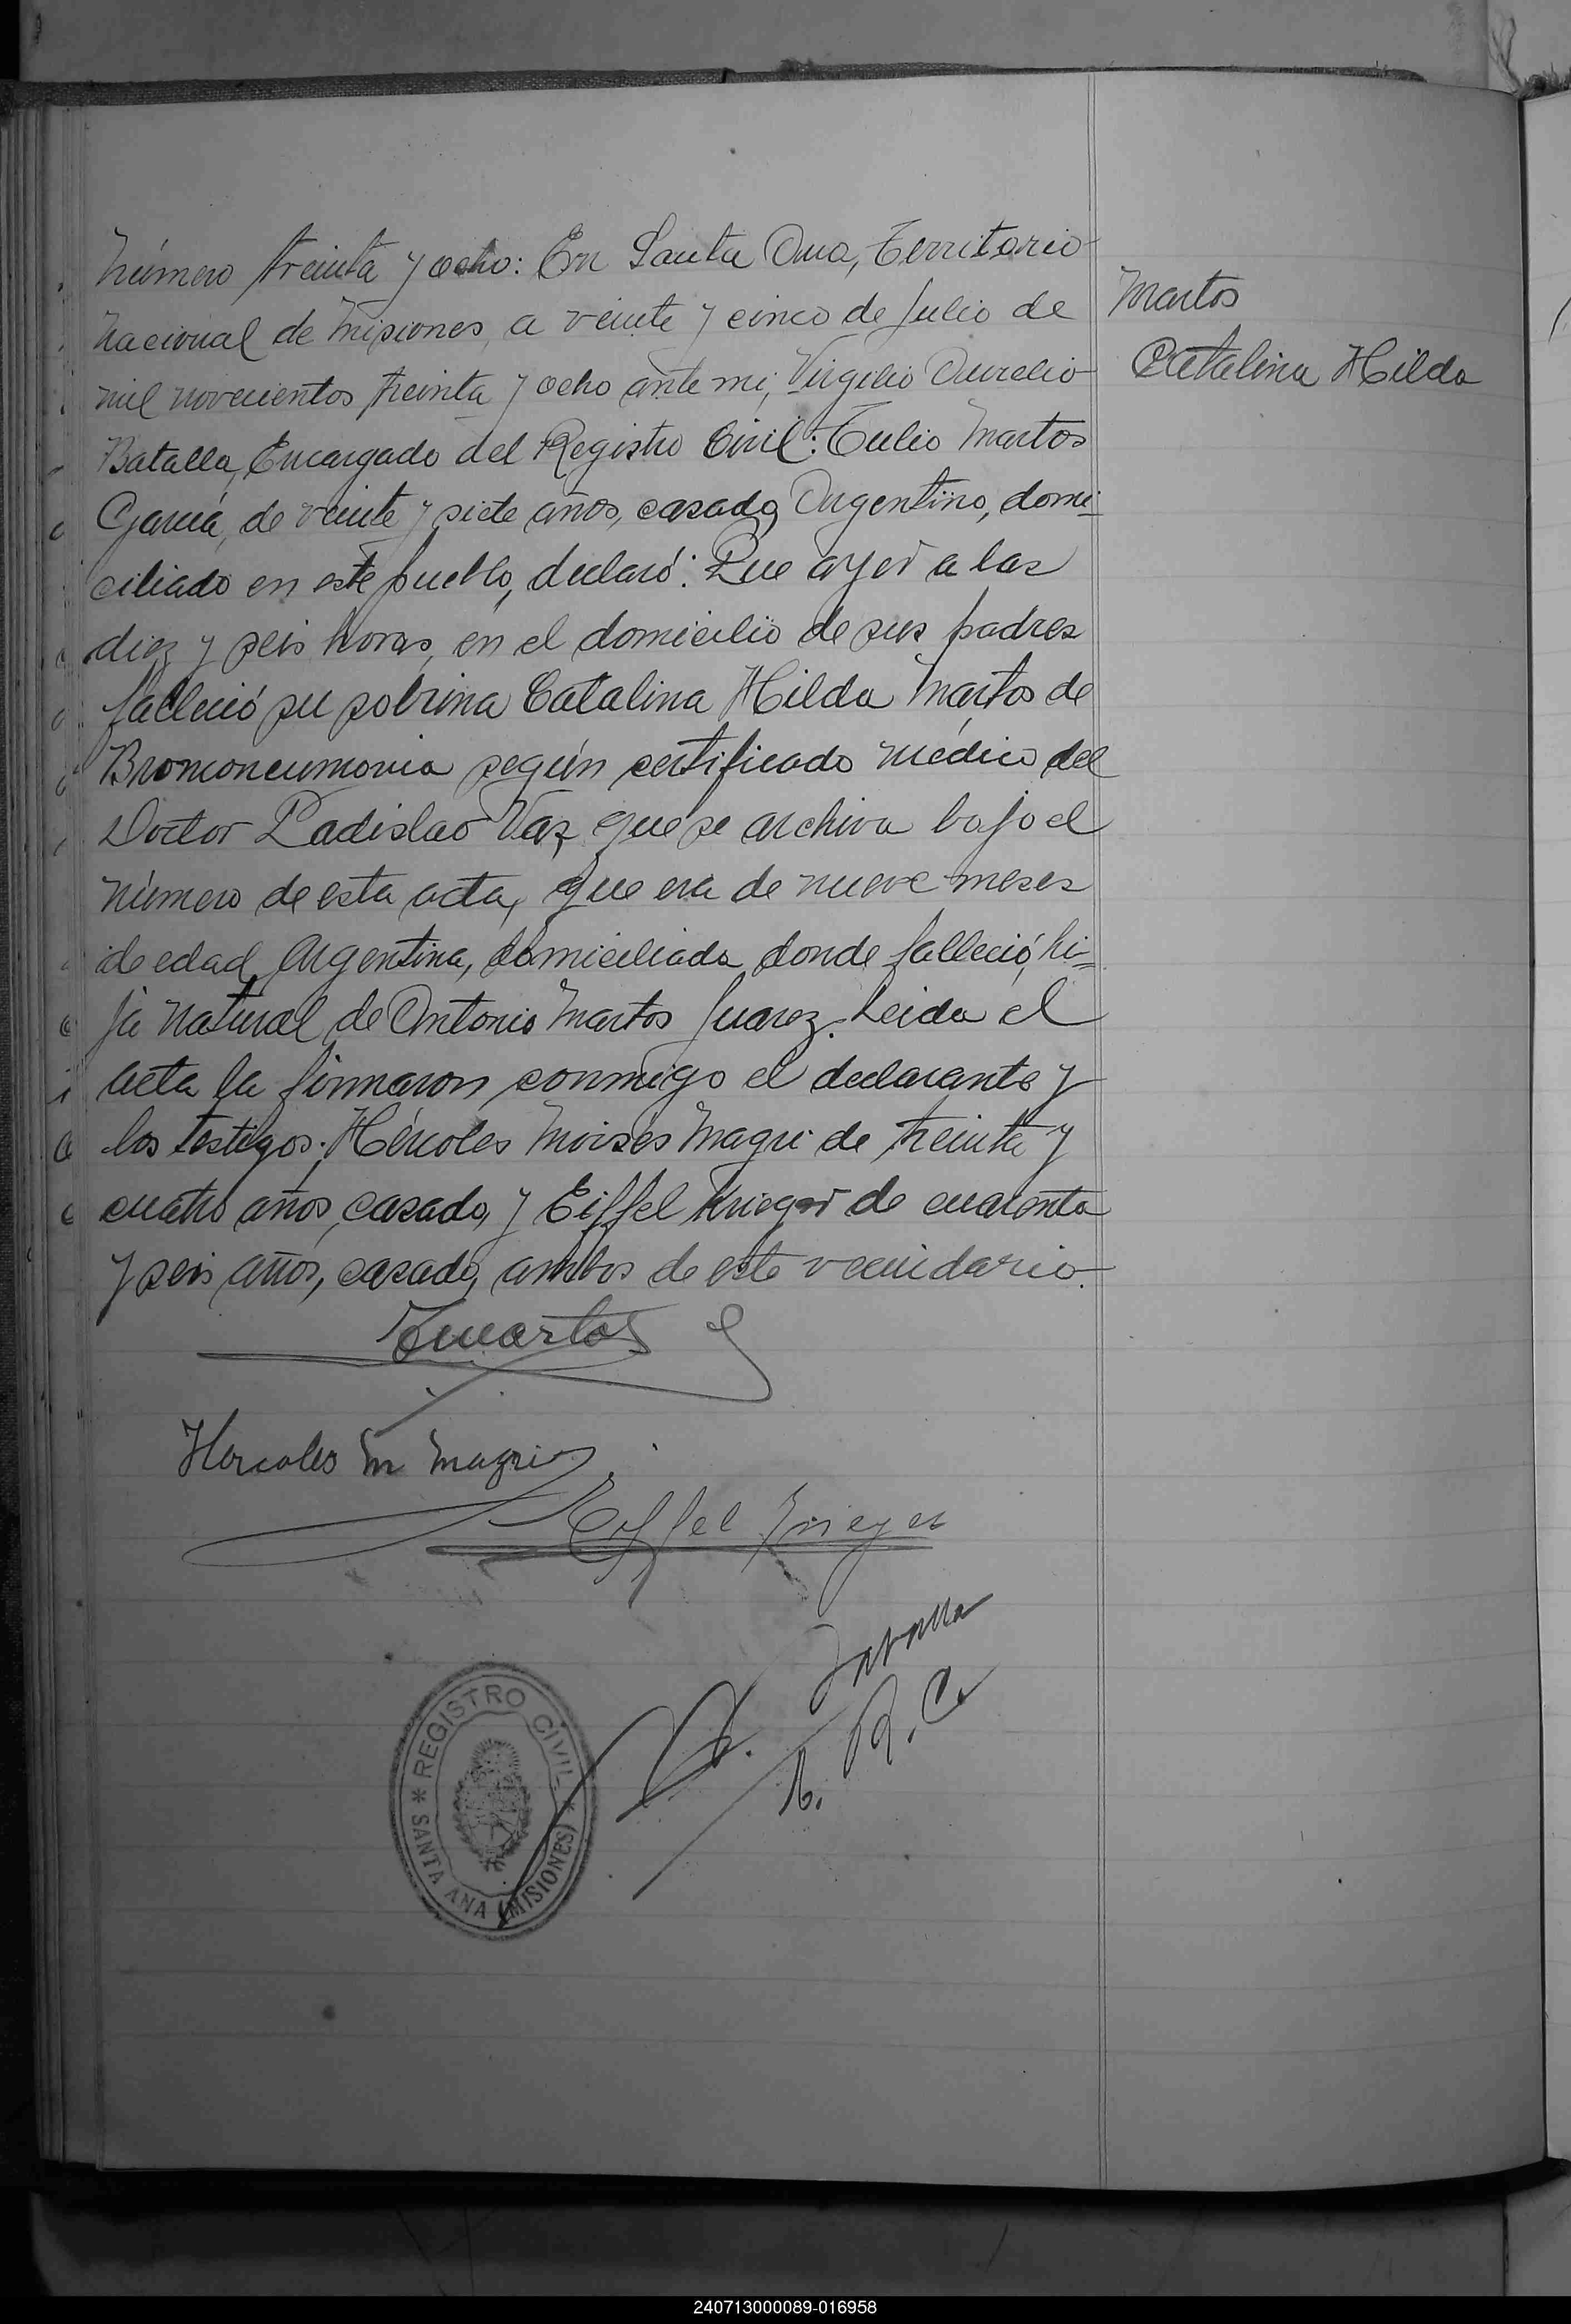 Número treinta y ocho: En Santa Ana, Territorio
Nacional de Misiones, a veinte y cinco de Julio de
mil novecientos treinta y ocho ante mi, Virgilio Aurelio
Batalla, Encargado del Registro Civil: Tulio Martos
García, de veinte y siete años, casado, Argentino, domi-
ciliado en este pueblo, declaró: Que ayer a las
diez y seis horas, en el domicilio de sus padres
falleció su sobrina Catalina Hilda Martos de
Bromoneumonia según certificado médico del
Doctor Ladislao Vaz, que se archiva bajo el
número de esta acta, que era de nueve meses
de edad, Argentina, domiciliada donde falleció, hi-
ja natural de Antonio Martos Juarez. Leida el
acta la firmaron conmigo el declarante y
los testigos: Hércoles Moisés Magri de treinta y
cuatro años, casado, y Eiffel Krieger de cuarenta
y seis años, casado, ambos de este vecindario.
Martos
Catalina Hilda
TMartos
Hercoles M Magri
Eiffel Krieger
Batalla
E. R. C.
REGISTRO CIVIL
* SANTA ANA (MISIONES) *
240713000089-016958